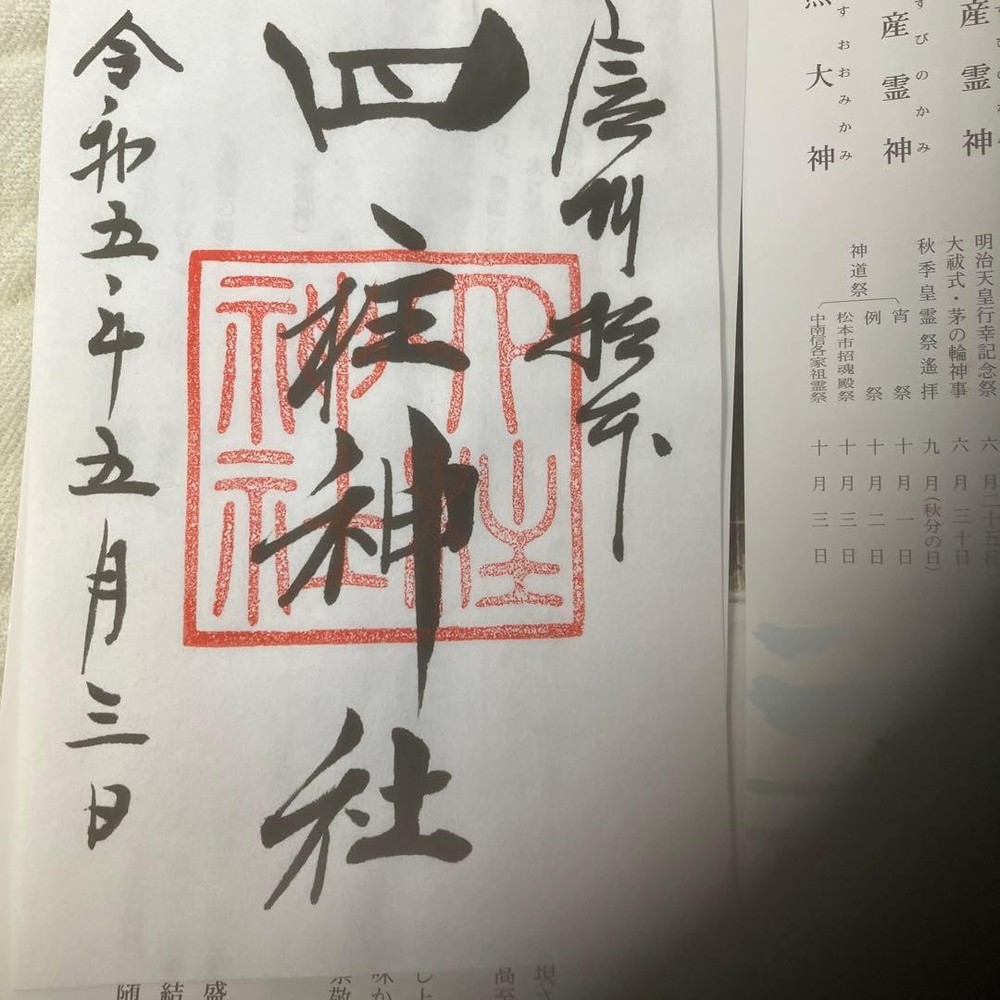 産霊神
産霊神
びのかみ
大神
すおおみかみ
明治天皇行幸記念祭 六月二十五日
大祓式・茅の輪神事 六月三十日
秋季皇霊祭遙拝 九月(秋分の日)
神道祭
宵祭 十月一日
例祭 十月二日
松本市招魂殿祭 十月三日
中南信各家祖霊祭 十月三日
信州松本
四柱神社
四柱神社
令和五年五月三日
盛
結